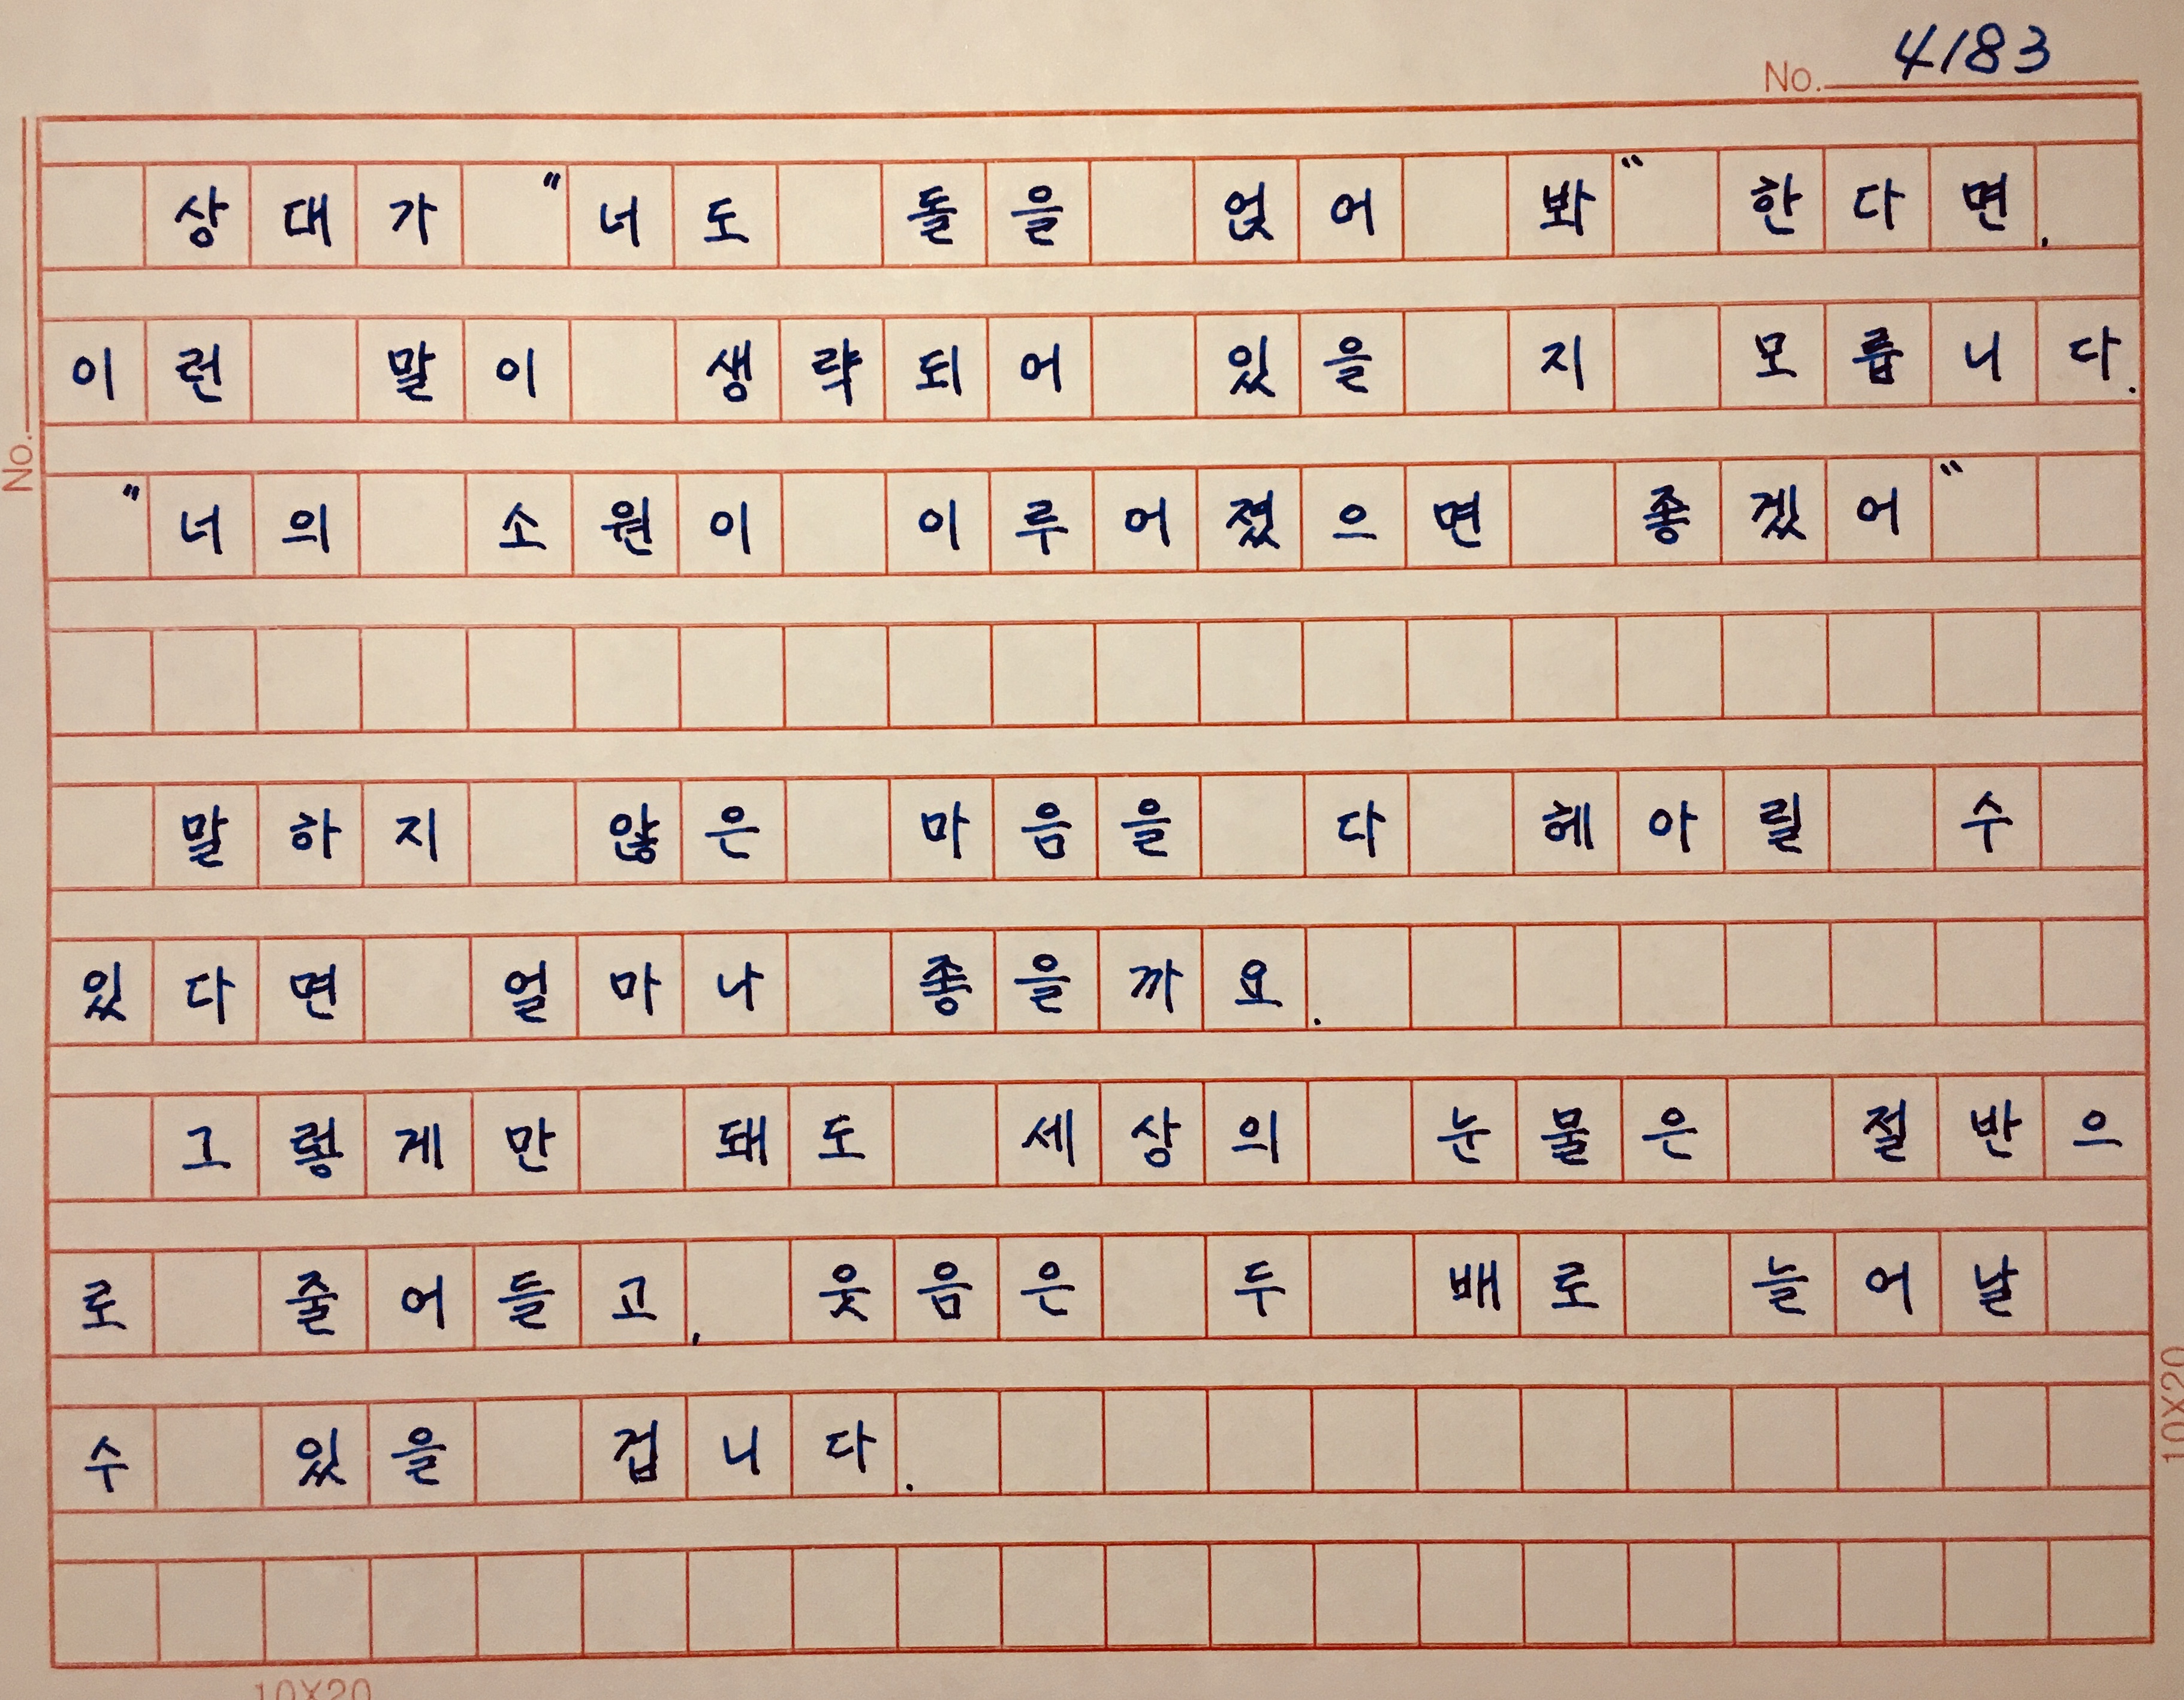 No. 4183
상대가 "너도 돌을 얹어 봐" 한다면.
이런 말이 생략되어 있을 지 모릅니다.
"너의 소원이 이루어졌으면 좋겠어"
말하지 않은 마음을 다 헤아릴 수
있다면 얼마나 좋을까요.
그렇게만 돼도 세상의 눈물은 절반으
로 줄어들고, 웃음은 두 배로 늘어날
수 있을 겁니다.
No.
10X20
10X20